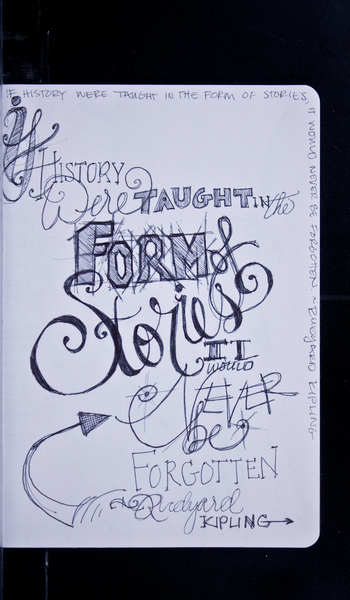 IF HISTORY WERE TAUGHT IN THE FORM OF STORIES,
IT WOULD NEVER BE FORGOTTEN. ~RUDYARD KIPLING~
if
HISTORY
Were TAUGHT IN the
FORM of
Stories
IT
WOULD
NEVER
be
FORGOTTEN
~Rudyard
KIPLING